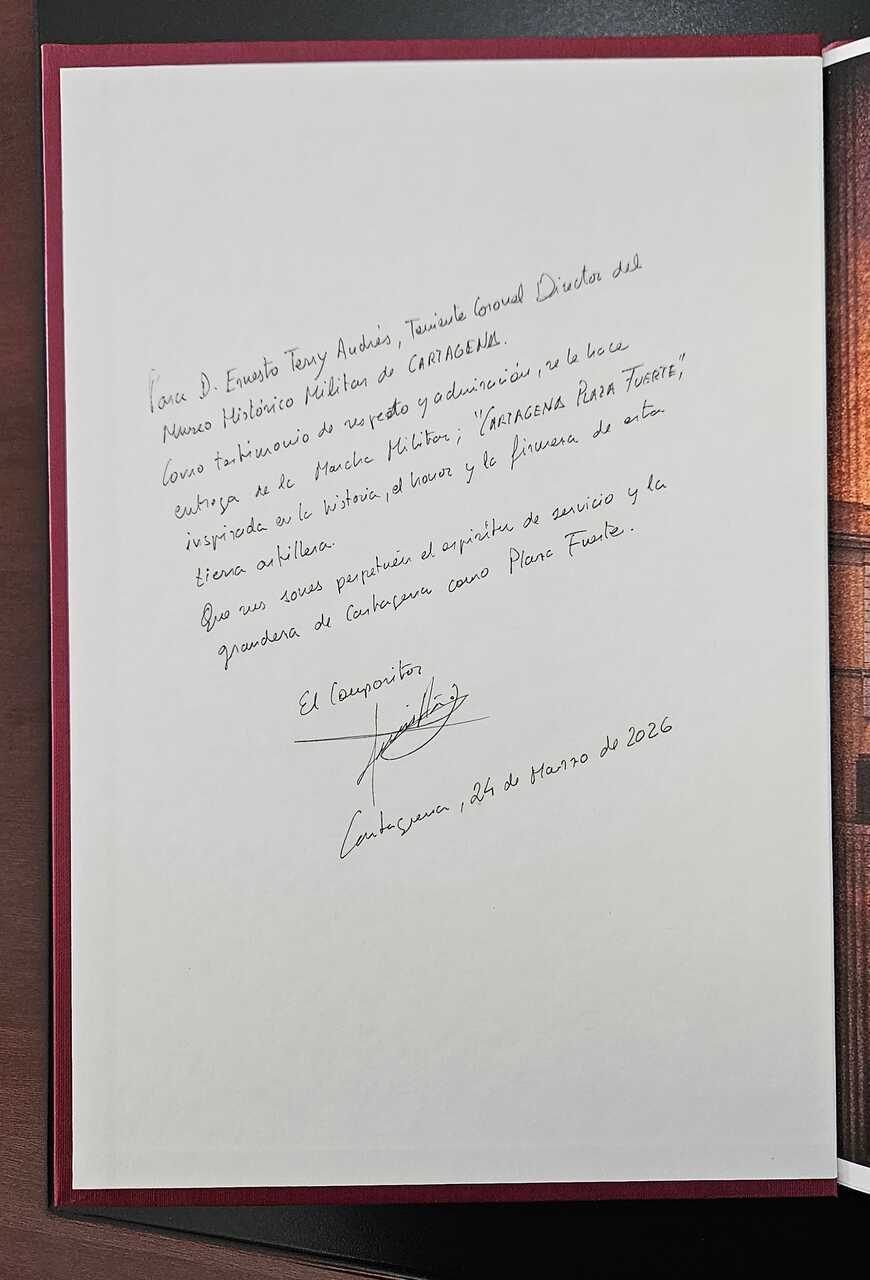 Para D. Ernesto Terry Andrés, Teniente Coronel Director del
Museo Histórico Militar de CARTAGENA.
Como testimonio de respeto y admiración, se le hace
entrega de la Marcha Militar; "CARTAGENA PLAZA FUERTE",
inspirada en la historia, el honor y la firmeza de esta
tierra artillera.
Que sus sones perpetuén el espíritu de servicio y la
grandeza de Cartagena como Plaza Fuerte.
El Compositor
Cartagena, 24 de Marzo de 2026